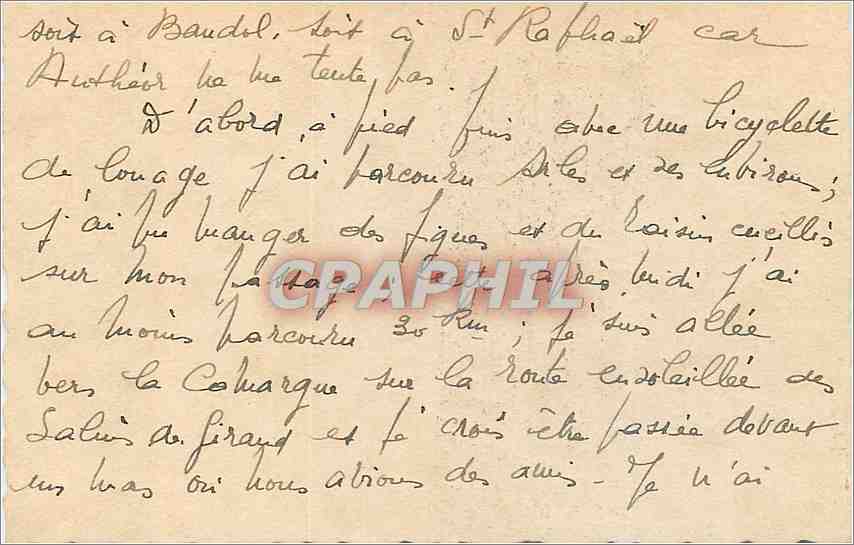 soit à Bandol, soit à St Raphaël car
Anthéor ne me tente pas.
D'abord, à pied puis avec une bicyclette
de louage j'ai parcouru Arles et ses environs ;
j'ai pu manger des figues et du raisin cueillis
sur mon passage ; cette après midi j'ai
au moins parcouru 30 Km ; je suis allée
vers la Camargue sur la route ensoleillée des
Salins de Giraud et je crois être passée devant
un mas où nous avions des amis - Je n'ai
CPAPHIL